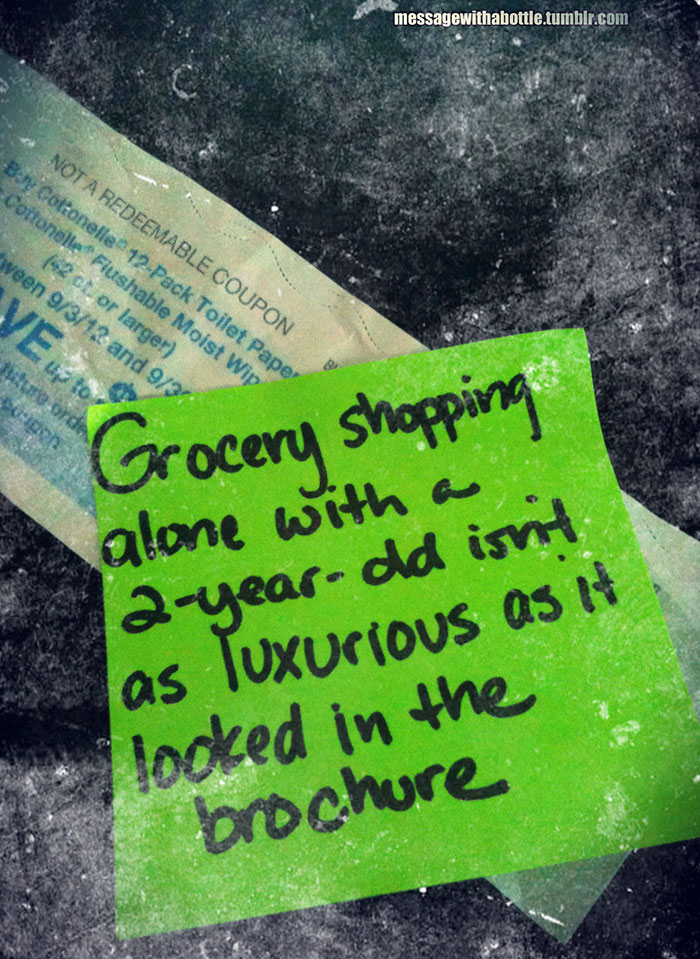 messagewithabottle.tumblr.com
NOT A REDEEMABLE COUPON
Buy Cottonelle® 12-Pack Toilet Paper
Cottonelle® Flushable Moist
(42 ct. or larger)
9/3/12 and
up to
Grocery shopping
alone with a
2-year-old isn't
as luxurious as it
looked in the
brochure